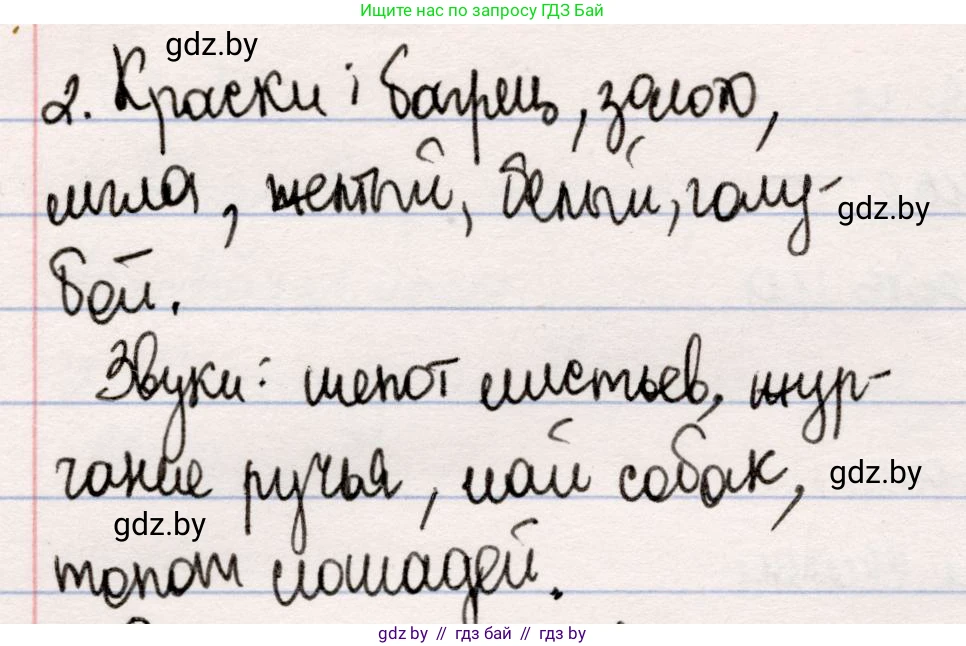 Ищите нас по запросу ГДЗ Бай
gdz.by
2. Краски: багрец, золото,
мгла, желтый, белый, голу-
gdz.by
бой.
Звуки: шепот листьев, жур-
чание ручья, лай собак,
gdz.by
gdz.by
топот лошадей.
gdz by // гдз бай // гдз by